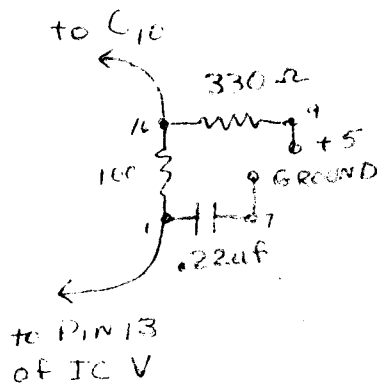 to C10
330 Ω
16
9
+5
100
GROUND
1
7
.22uf
to PIN 13
of IC V